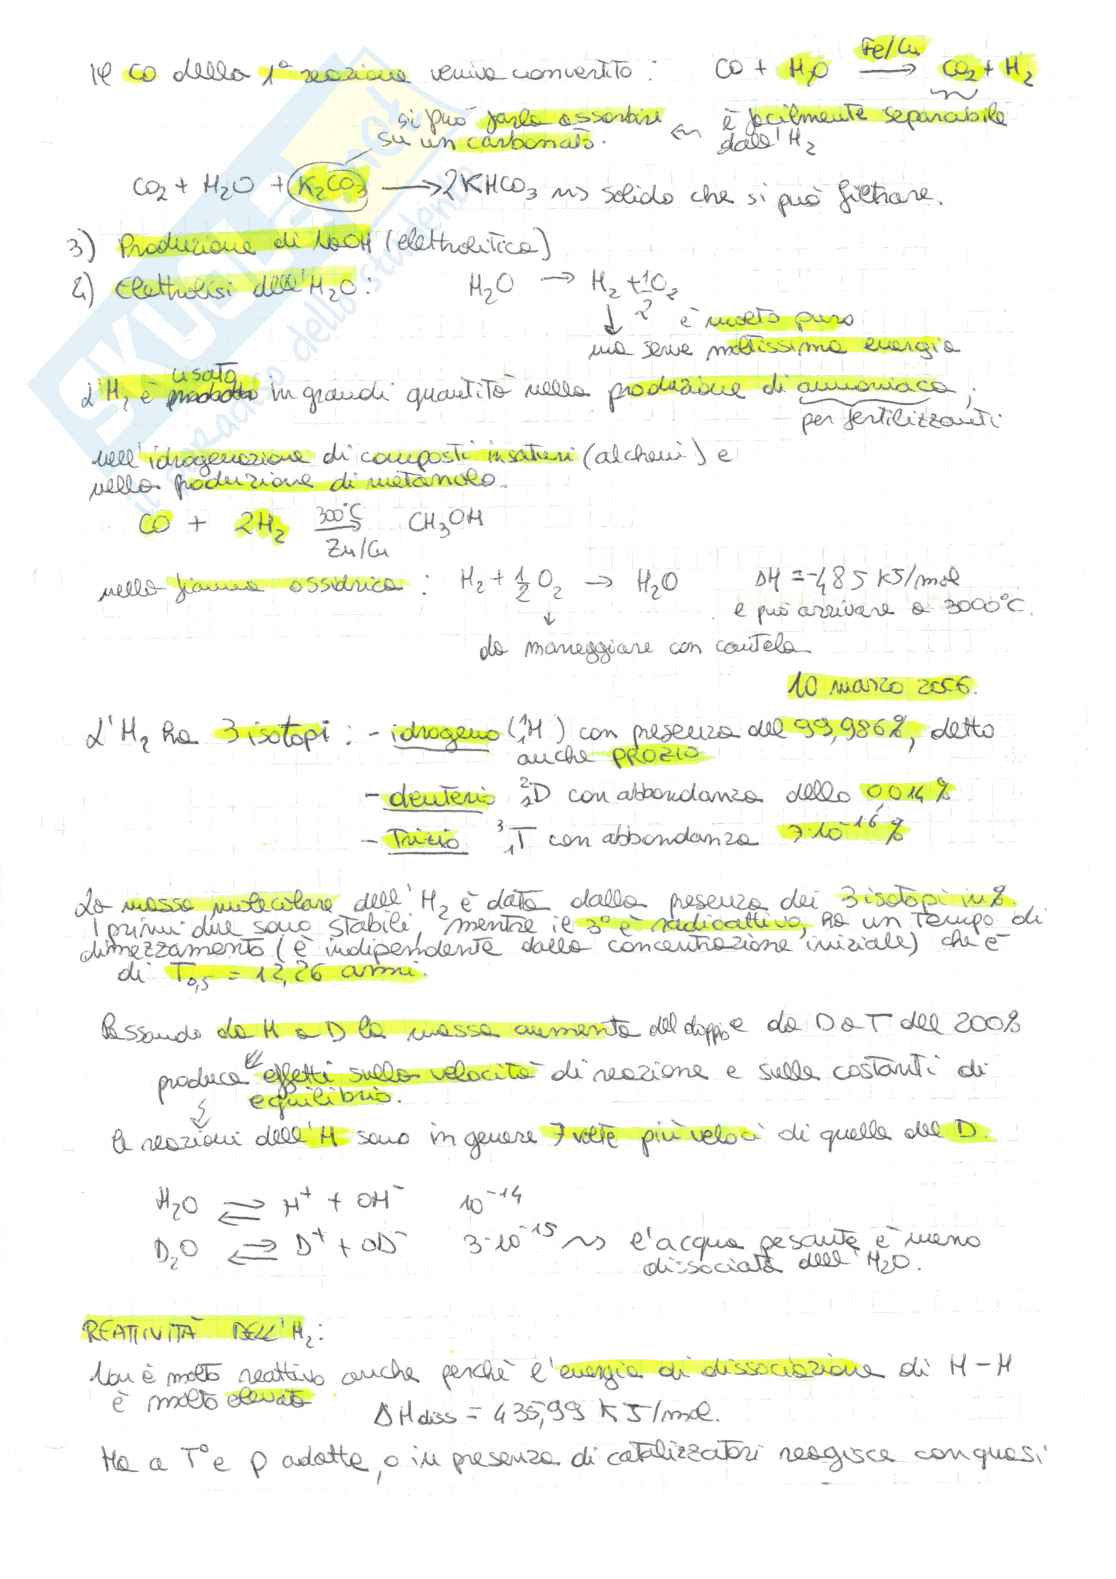 Il CO della 1ª reazione veniva convertito: CO + H₂O —Fe/Cu→ CO₂ + H₂
si può farlo assorbire su un carbonato. ← è facilmente separabile dall'H₂
CO₂ + H₂O + K₂CO₃ → 2KHCO₃ ~> solido che si può filtrare.
3) Produzione di NaOH (elettrolitica)
4) Elettrolisi dell'H₂O: H₂O → H₂ + 1/2 O₂
↓ è molto puro
ma serve moltissima energia
L'H₂ è usato in grandi quantità nella produzione di ammoniaca;
per fertilizzanti
nell'idrogenazione di composti insaturi (alcheni) e
nella produzione di metanolo.
CO + 2H₂ —300°C Zn/Cu→ CH₃OH
nella fiamma ossidrica: H₂ + 1/2 O₂ → H₂O ΔH = -485 KJ/mol
↓ e può arrivare a 3000°C.
da maneggiare con cautela
10 marzo 2006.
L'H₂ ha 3 isotopi: - idrogeno (¹₁H) con presenza del 99,986%, detto
anche PROZIO
- deuterio ²₁D con abbondanza dello 0,014%
- Trizio ³₁T con abbondanza 7·10⁻¹⁶%
La massa molecolare dell'H₂ è data dalla presenza dei 3 isotopi in %.
I primi due sono stabili, mentre il 3° è radioattivo, ha un tempo di
dimezzamento (è indipendente dalla concentrazione iniziale) che è
di T₀,₅ = 12,26 anni.
Passando da H a D la massa aumenta del doppio e da D a T del 200%
produce effetti sulla velocità di reazione e sulle costanti di
equilibrio.
le reazioni dell'H sono in genere 7 volte più veloci di quelle del D.
H₂O ⇌ H⁺ + OH⁻ 10⁻¹⁴
D₂O ⇌ D⁺ + OD⁻ 3·10⁻¹⁵ ~> l'acqua pesante è meno
dissociata dell'H₂O.
REATTIVITÀ DELL'H₂:
Non è molto reattivo anche perchè l'energia di dissociazione di H-H
è molto elevata ΔHdiss = 435,99 KJ/mol.
Ma a T° e p adatte, o in presenza di catalizzatori reagisce con quasi